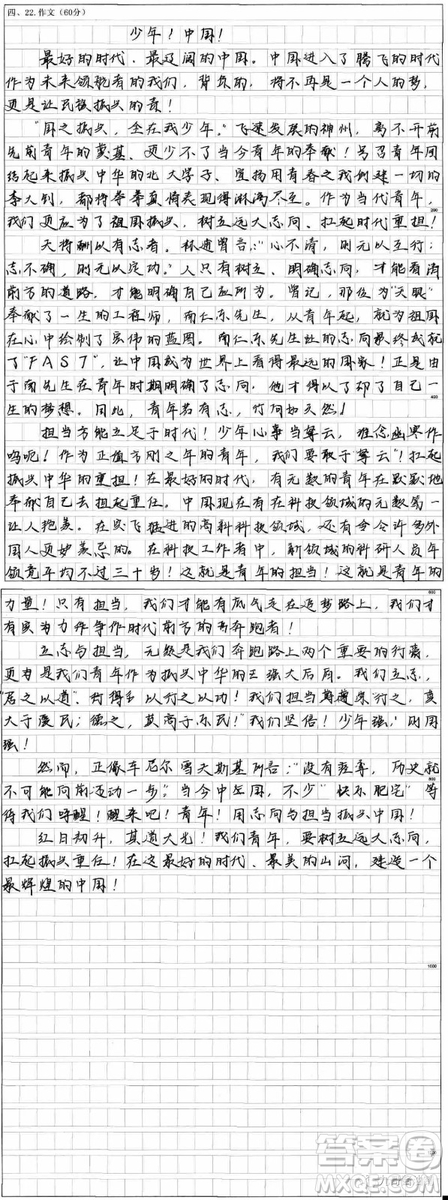 四、22.作文(60分)
少年！中国！
最好的时代，最辽阔的中国。中国进入了腾飞的时代
作为未来领航者的我们，背负的，将不再是一个人的梦，
更是让民族振兴的责！
"国之振兴，全在我少年。"飞速发展的神州，离不开前
先前青年的奠基，更少不了当今青年的奉献！号召青年团
结起来振兴中华的北大学子、宣扬用青春之我创建一切的
李大钊，都将奉献表现得淋漓尽致。作为当代青年，
我们更应为了祖国振兴，树立远大志向、扛起时代重担！
200
天将酬以有志者。林逋曾言："心不清，则无以立行；
志不确，则无以定功。"人只有树立、明确志向，才能看清
前方的道路，才能明确自己应所为。曾记，那位为"天眼"
奉献了一生的工程师，南仁东先生，从青年起，就为祖国
在心中绘制了宏伟的蓝图。南仁东先生壮的志向最终成就
了"FAST"，让中国成为世界上看得最远的国家！正是由
于南先生在青年时期明确了志向，他才得以了却了自己一
400
生的梦想。因此，青年若有志，何
担当方能立足于时代！少年心事当拏云，谁念幽寒作
呜呃！作为正值方刚之年的青年，我们要敢于拏云！扛起
振兴中华的重担！在最好的时代，有无数的青年在默默地
奉献自己去担起重任。中国现在有在科技领域的无数第一
让人艳羡。在突飞猛进的高科科技领域，还有令令许多外
国人更妒羡忌的。在科技工作者中，新领域的科研人员年
领竟平均不过三十岁！这就是青年的担当！这就是青年的
600
力量！只有担当，我们才能有底气走在追梦路上，我们才
有实力作争作时代前方的奔跑者！
立志与担当，无疑是我们奔跑路上两个重要的行囊，
更为是我们青年作为振兴中华的三强大后盾。我们立志，
"居之以道"，以行之以功！我们担当
大于爱民；"我们坚信！少年强！则国
强！
800
然而，正像车尼尔雪夫斯基所言："没有青年，历史就
不可能向前运动一步。"当今中年国，不少"快乐肥宅"等
待我们呼醒！醒来吧！青年！用志向与担当振兴中国！
红日初升，其道大光！我们青年，要树立远大志向，
扛起振兴重任！在这最好的时代、最美的山河，建造一个
最辉煌的中国！
1000
答案圈
MXQE.COM